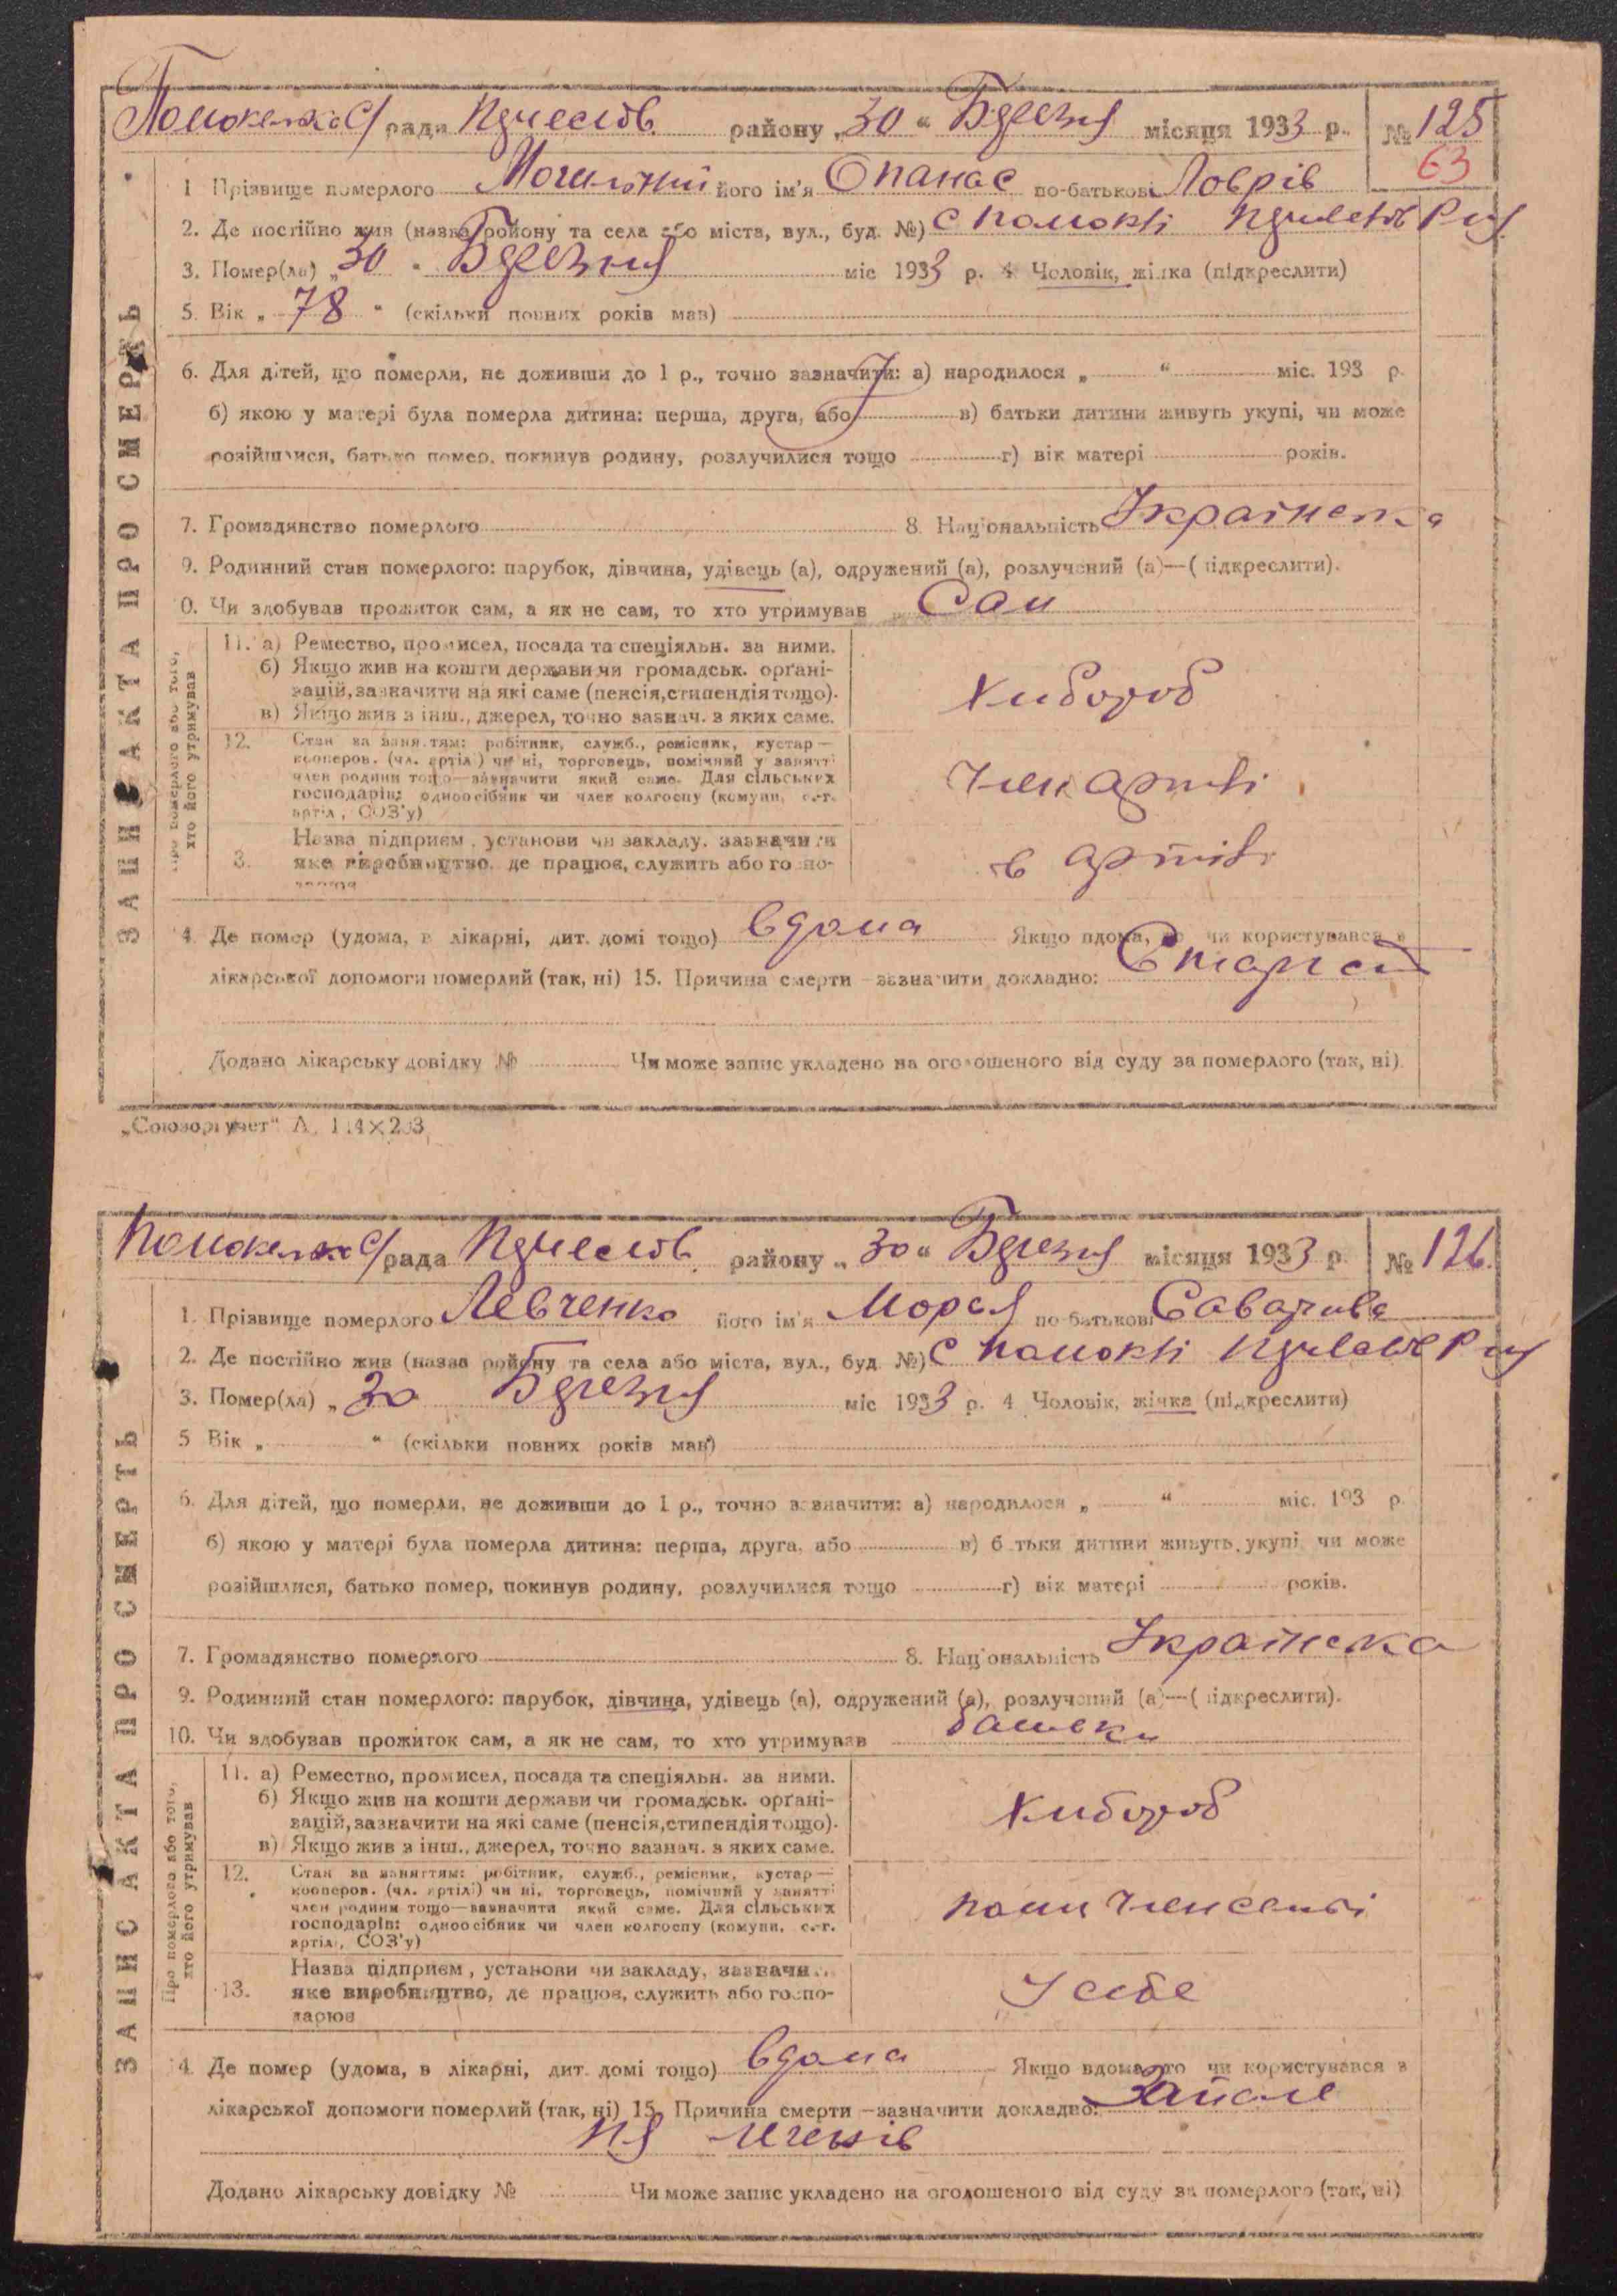 рада районy „30" Березня місяця 1933 р. № 125
63
ЗАПИС АКТА ПРО СМЕРТЬ
1 Прізвище померлого Могильний його ім'я Опанас по-батькові Ловрів
2. Де постійно жив (назва району та села або міста, вул., буд. №) с
3. Помер(ла) „30 " Березня міс 1933 р. 4 Чоловік, жінка (підкреслити)
5. Вік „ 78 " (скільки повних років мав)
6. Для дітей, що померли, не доживши до 1 р., точно зазначити: а) народилося „ " міс. 193 р.
б) якою у матері була померла дитина: перша, друга, або в) батьки дитини живуть укупі, чи може
розійшлися, батько помер, покинув родину, розлучилися тощо г) вік матері років.
7. Громадянство померлого 8. Національність Українска
9. Родинний стан померлого: парубок, дівчина, удівець (а), одружений (а), розлучений (а)—(підкреслити).
0. Чи здобував прожиток сам, а як не сам, то хто утримував Сам
Про померлого або того, хто його утримував
11. а) Ремество, промисел, посада та спеціяльн. за ними.
б) Якщо жив на кошти держави чи громадськ. органі-
зацій, зазначити на які саме (пенсія, стипендія тощо).
в) Якщо жив з інш., джерел, точно зазнач. з яких саме.
Хибороб
12. Стан за заняттям: робітник, служб., ремісник, кустар—
кооперов. (чл. артілі) чи ні, торговець, помічний у занятті
член родини тощо—зазначити який саме. Для сільських
господарів: одноосібник чи член колгоспу (комуни, с.-г.
артіл, СОЗ'у)
Член артілі
3. Назва підприєм, установи чи закладу, зазначити
яке виробництво, де працює, служить або госпо-
дарює
в артілі
4. Де помер (удома, в лікарні, дит. домі тощо) вдома Якщо вдома, то чи користувався з
лікарської допомоги померлий (так, ні) 15. Причина смерти—зазначити докладно:
Додано лікарську довідку № Чи може запис укладено на оголошеного від суду за померлого (так, ні).
„Союзоргучет"
рада району „ 30 " Березня місяця 1933 р № 126.
ЗАПИС АКТА ПРО СМЕРТЬ
1. Прізвище померлого Левченко його ім'я по-батькові
2. Де постійно жив (назва району та села або міста, вул., буд. №) с
3. Помер(ла) „ 30 Березня міс 1933 р. 4 Чоловік, жінка (підкреслити)
5 Вік „ " (скільки повних років мав)
6. Для дітей, що померли, не доживши до 1 р., точно зазначити: а) народилося „ " міс. 193 р.
б) якою у матері була померла дитина: перша, друга, або в) батьки дитини живуть укупі, чи може
розійшлися, батько помер, покинув родину, розлучилися тощо г) вік матері років.
7. Громадянство померлого 8. Національність Українска
9. Родинний стан померлого: парубок, дівчина, удівець (а), одружений (а), розлучений (а)—(підкреслити).
10. Чи здобував прожиток сам, а як не сам, то хто утримував батьки
Про померлого або того, хто його утримував
11. а) Ремество, промисел, посада та спеціяльн. за ними.
б) Якщо жив на кошти держави чи громадськ. органі-
зацій, зазначити на які саме (пенсія, стипендія тощо).
в) Якщо жив з інш., джерел, точно зазнач. з яких саме.
Хибороб
12. Стан за заняттям: робітник, служб., ремісник, кустар—
кооперов. (чл. артілі) чи ні, торговець, помічний у занятті
член родини тощо—зазначити який саме. Для сільських
господарів: одноосібник чи член колгоспу (комуни, с.-г.
артіл, СОЗ'у)
13. Назва підприєм, установи чи закладу, зазначи
яке виробництво, де працює, служить або госпо-
дарює
У себе
4. Де помер (удома, в лікарні, дит. домі тощо) вдома Якщо вдома, то чи користувався з
лікарської допомоги померлий (так, ні) 15. Причина смерти—зазначити докладно: Запале
ня легенів
Додано лікарську довідку № Чи може запис укладено на оголошеного від суду за померлого (так, ні)